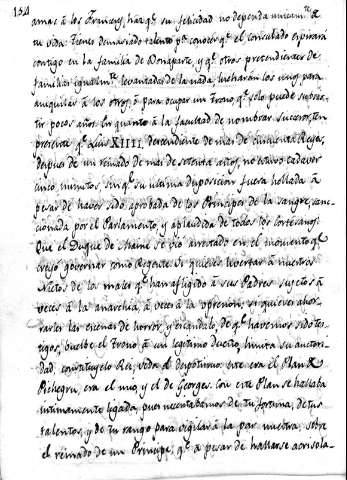 134
amas à los Franceses, haz q.e su felicidad no dependa unicam.te de
tu vida: Tienes demasiado talento p.a conocer q.e el consulado espirará
contigo en la familia de Bonaparte, y q.e otros pretendientes de
familias igualm.te levantadas de la nada, lucharán los unos para
aniquilar à los otros, à para ocupar un Trono, q.e solo puede subsis-
tir pocos años. En quanto à la facultad de nombrar sucesor, ten
presente q.e Luis XIIII, descendiente de mas de cinquenta Reyes,
despues de un reinado de mas de setenta años, no estuvo cadaver
cinco minutos, sin q.e su ultima disposicion fuera hollada à
pesar de haver sido aprobada de los Principes de la sangre, san-
cionada por el Parlamento, y aplaudida de todos los cortesanos.
Que el Duque de Maine se vió arrestado en el momento q.e
creyó governar como Regente. Si quieres libertar à nuestros
Nietos de los males q.e han afligido à sus Padres sugetos à
veces à la anarchia, à veces à la opresion, si quieres ahor-
rarles las escenas de horror, y escandalo, de q.e havemos sido tes-
tigos, buelbe el trono à un legitimo dueño, limita su autori-
dad, constituyelo Rei, veda el despotismo: este era el Plan de
Pichegru, era el mio, y el de Georges. Con este Plan se hallaba
intimamente ligada, pues necesitabamos de tu fortuna, de tus
talentos, y de tu rango para vigilar à la par nuestra, sobre
el reinado de un Principe, q.e à pesar de hallarse acrisola-